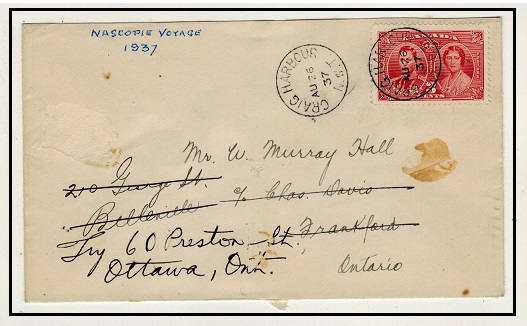 NASCOPIE VOYAGE
1937
CRAIG HARBOUR N.W.T.
AU 26
37
CANADA
CENTS
CRAIG HARBOUR
AU 26
37
Mr. W. Murray Hall
210 George St. c/o Chas. Davis
Belleville Frankford
Try 60 Preston St.
Ottawa, Ont. Ontario